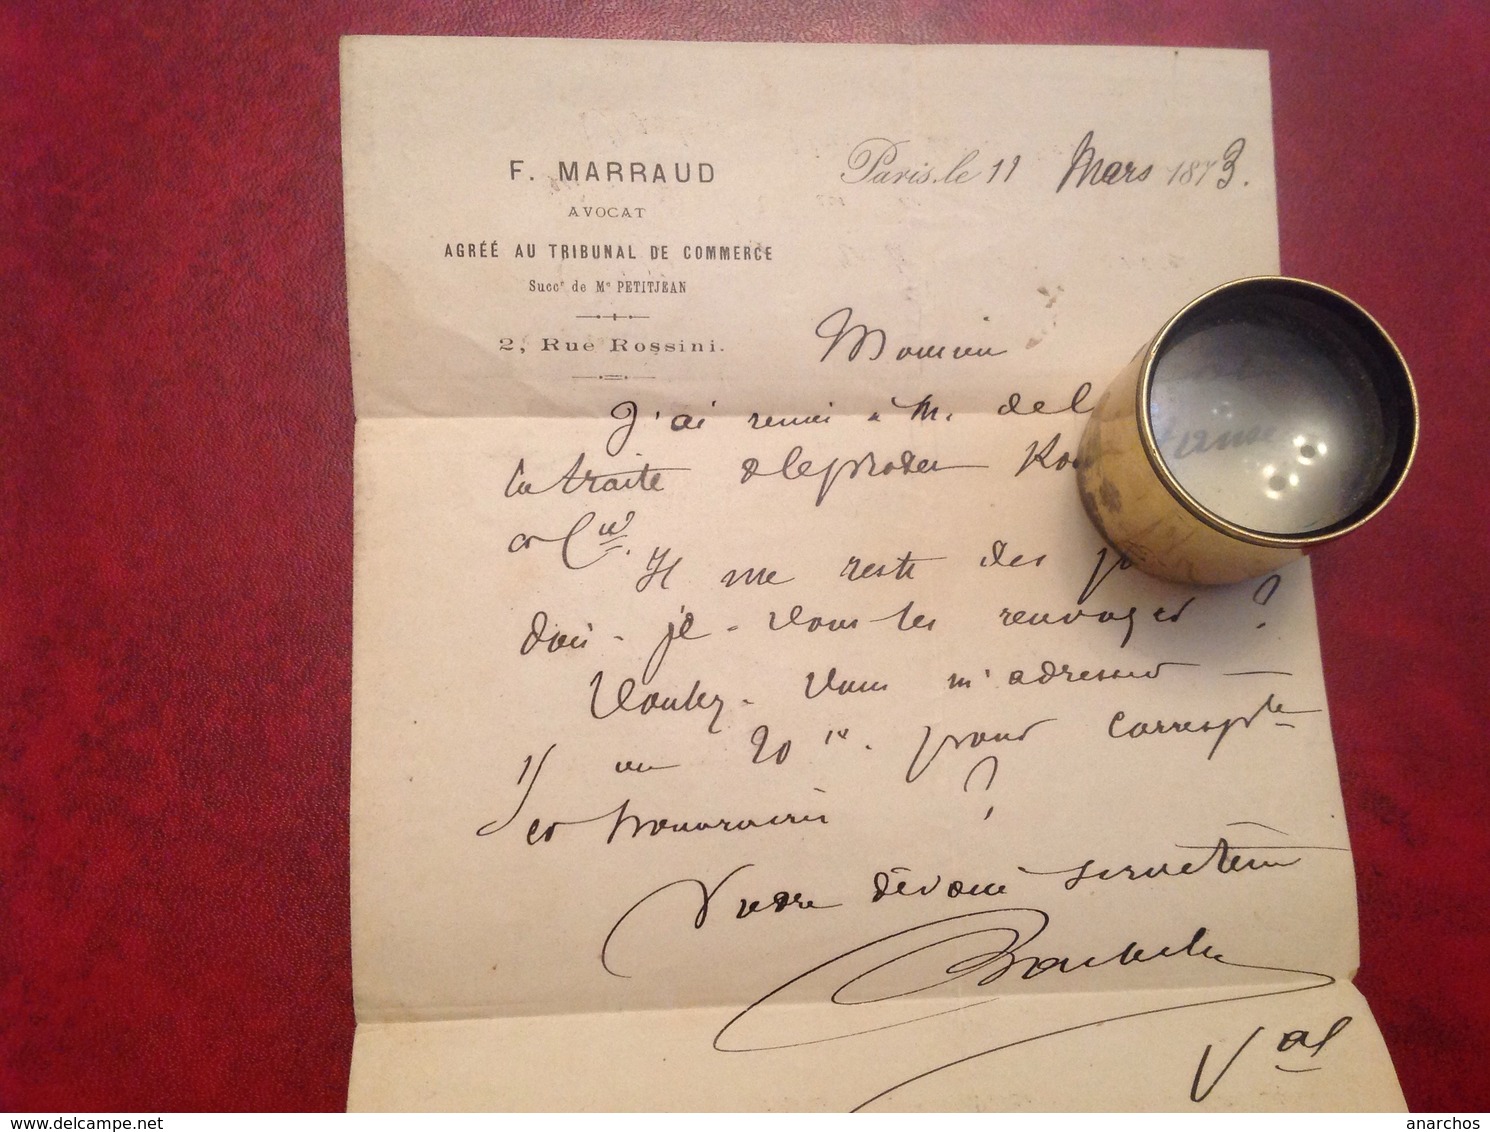 F. MARRAUD
AVOCAT
AGRÉÉ AU TRIBUNAL DE COMMERCE
Succr de Me PETITJEAN
2, Rue Rossini.
Paris, le 11 Mars 1873.
Monsieur
J'ai remis à M. del
la traite
et Cie.
Il me reste des
dois-je-vous-les renvoyer ?
Voulez-vous m'adresser
un 20 pour correspce
et honoraires ?
Votre dévoué serviteur
delcampe.net
anarchos